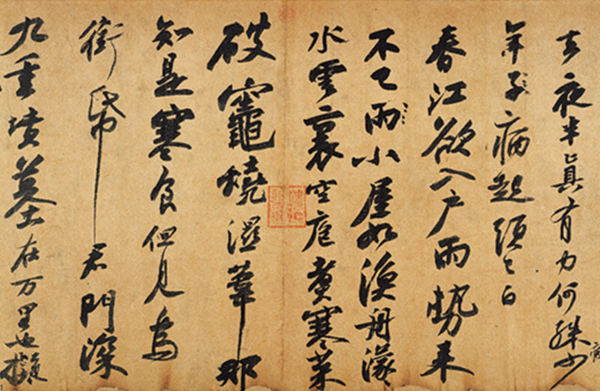 去夜半真有力何殊少病
年子病起頭已白
春江欲入戶雨勢來
不已雨小屋如漁舟濛々
水雲裏空庖煮寒菜
破竈燒濕葦那
知是寒食但見烏
銜帋君門深
九重墳墓在万里也擬